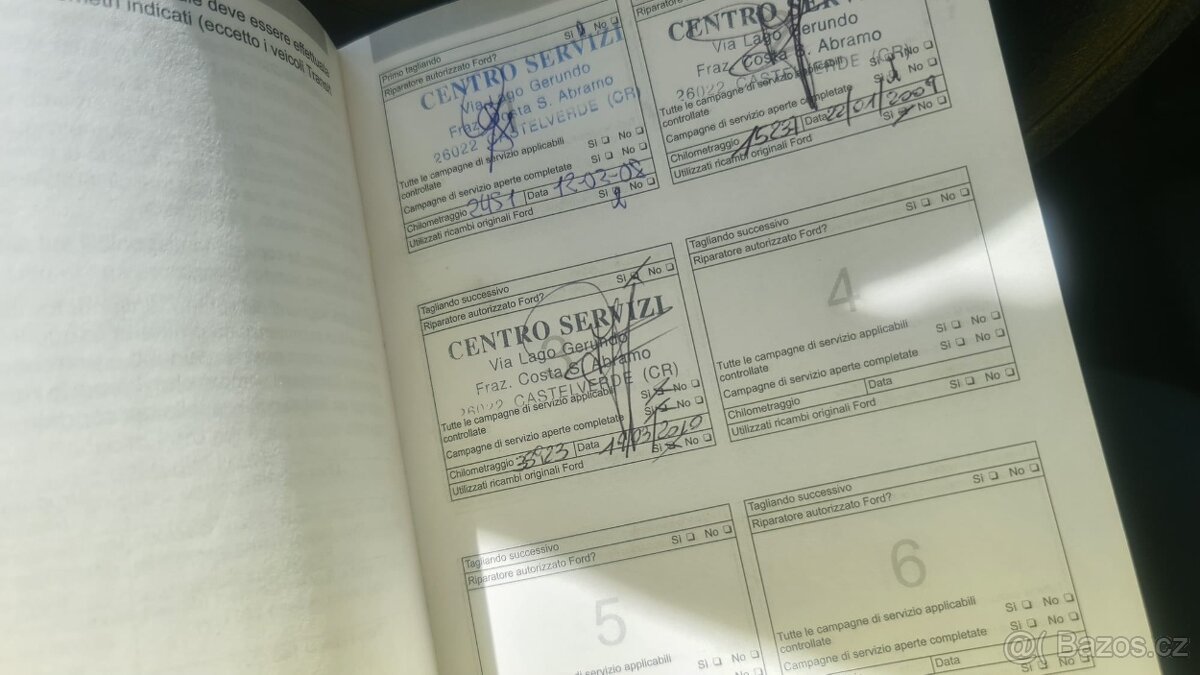 deve essere effettuata
indicati (eccetto i veicoli Transit
Primo tagliando
Riparatore autorizzato Ford? Sì No
CENTRO SERVIZI
Via Lago Gerundo
Fraz. Costa S. Abramo
26022 CASTELVERDE (CR)
Tutte le campagne di servizio applicabili
controllate Sì No
Campagne di servizio aperte completate Sì No
Chilometraggio 2451 Data 13-03-08
Utilizzati ricambi originali Ford Sì No
Riparatore autorizzato
CENTRO SERVIZI
Via Lago Gerundo
Fraz. Costa S. Abramo
26022 CASTELVERDE (CR)
Tutte le campagne di servizio applicabili
controllate Sì No
Campagne di servizio aperte completate Sì No
Chilometraggio 15237 Data 22/01/2009
Utilizzati ricambi originali Ford Sì No
Tagliando successivo
Riparatore autorizzato Ford? Sì No
3
CENTRO SERVIZI
Via Lago Gerundo
Fraz. Costa S. Abramo
26022 CASTELVERDE (CR)
Tutte le campagne di servizio applicabili
controllate Sì No
Campagne di servizio aperte completate Sì No
Chilometraggio 33923 Data 19/03/2010
Utilizzati ricambi originali Ford Sì No
Tagliando successivo
Riparatore autorizzato Ford? Sì No
4
Tutte le campagne di servizio applicabili
controllate Sì No
Campagne di servizio aperte completate Sì No
Chilometraggio Data
Utilizzati ricambi originali Ford Sì No
Tagliando successivo
Riparatore autorizzato Ford? Sì No
5
di servizio applicabili Sì No
Tagliando successivo
Riparatore autorizzato Ford? Sì No
6
Tutte le campagne di servizio applicabili
controllate Sì No
Campagne di servizio aperte completate Sì No
Chilometraggio Data
Sì No
Bazos.cz